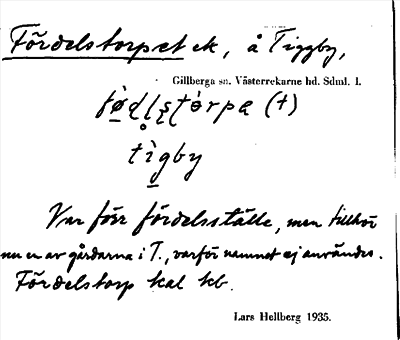 Fördelstorpet ek, å Tiggby,
Gillberga sn. Västerrekarne hd. Sdml. 1.
tìgby
Var förr fördelsställe, men tillhör
nu en av gårdarna i T., varför namnet ej användes.
Fördelstorp kal kb.
Lars Hellberg 1935.